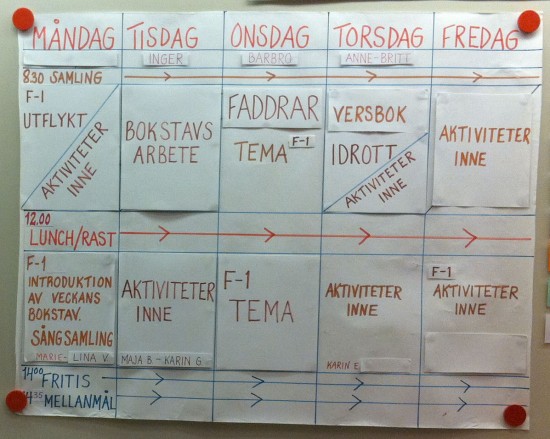 MÅNDAG TISDAG ONSDAG TORSDAG FREDAG
INGER BARBRO ANNE-BRITT
8.30 SAMLING
F-1
UTFLYKT
AKTIVITETER
INNE
BOKSTAVS
ARBETE
FADDRAR
TEMA F-1
VERSBOK
IDROTT
AKTIVITETER
INNE
AKTIVITETER
INNE
12.00
LUNCH/RAST
F-1
INTRODUKTION
AV VECKANS
BOKSTAV.
SÅNGSAMLING
MARIE- LINA V.
AKTIVITETER
INNE
MAJA B - KARIN G
F-1
TEMA
AKTIVITETER
INNE
KARIN E.
F-1
AKTIVITETER
INNE
14.00 FRITIS
MELLANMÅL